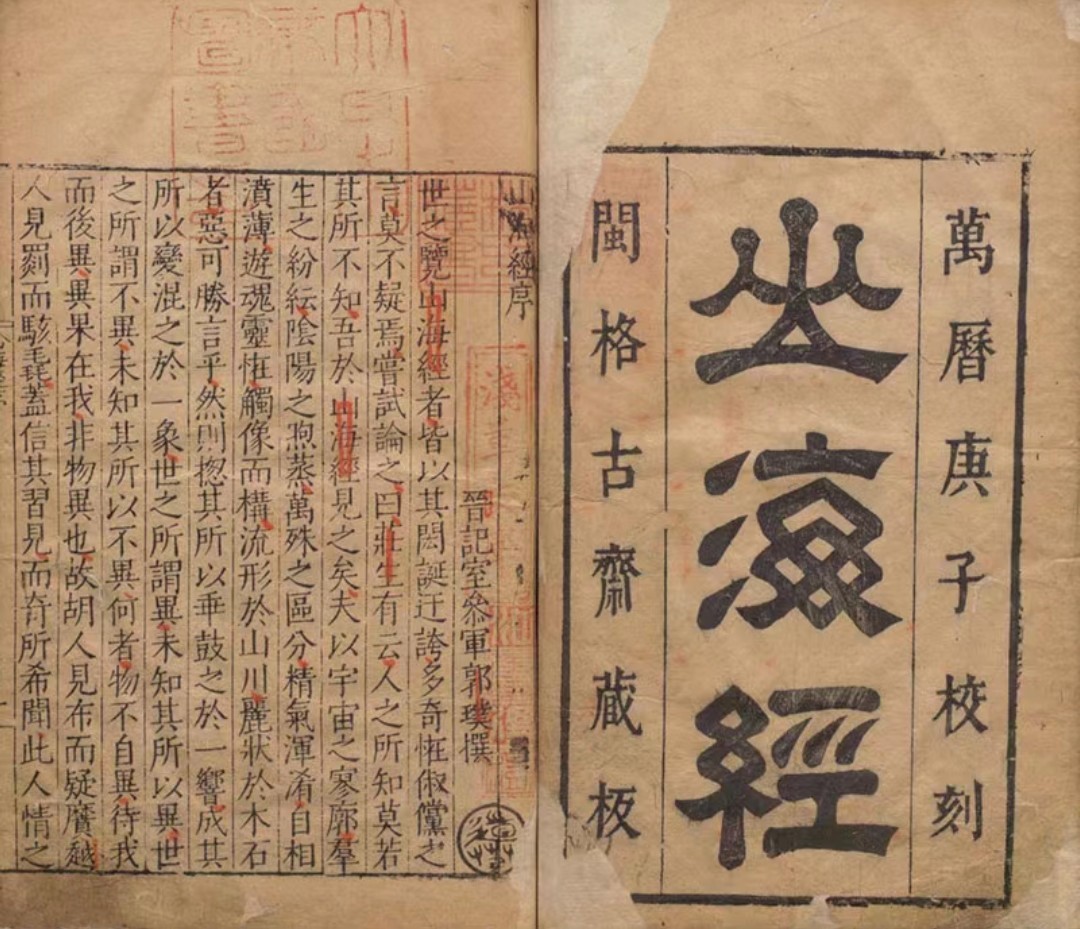 萬曆庚子校刻
山海經
閩格古齋藏板
山海經序
晉記室叅軍郭璞撰
世之覽山海經者皆以其閎誕迂誇多奇恠俶儻之
言莫不疑焉嘗試論之曰莊生有云人之所知莫若
其所不知吾於山海經見之矣夫以宇宙之寥廓羣
生之紛紜陰陽之煦蒸萬殊之區分精氣渾淆自相
濆薄遊魂靈恠觸像而構流形於山川麗狀於木石
者惡可勝言乎然則揔其所以乖鼓之於一響成其
所以變混之於一象世之所謂異未知其所以異世
之所謂不異未知其所以不異何者物不自異待我
而後異異果在我非物異也故胡人見布而疑黂越
人見罽而駭毳蓋信其習見而奇所希聞此人情之